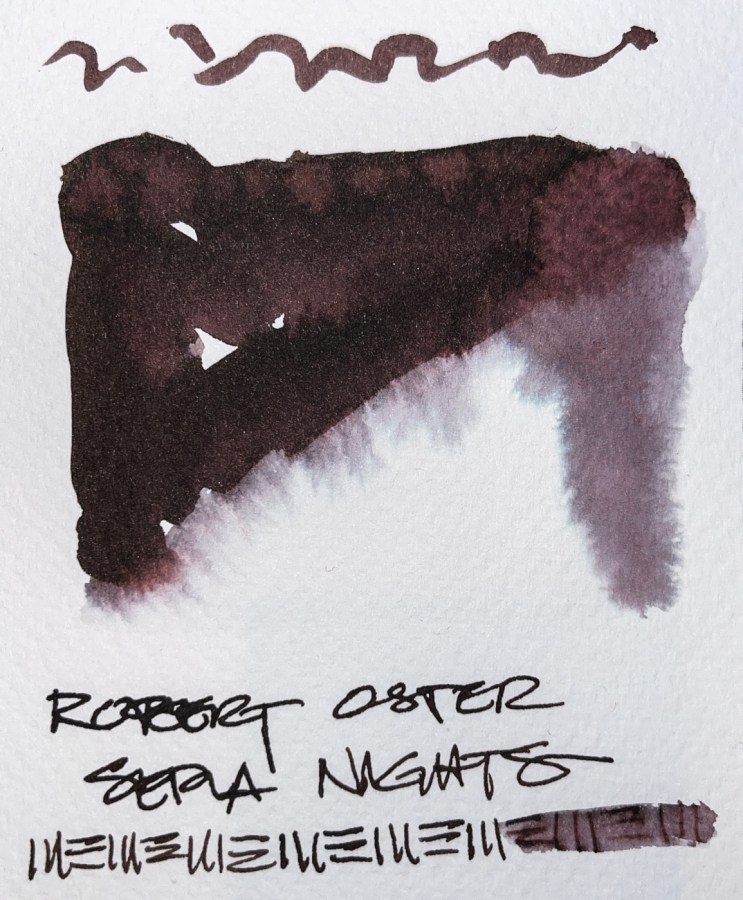 ROBERT OSTER
SEPIA NIGHTS